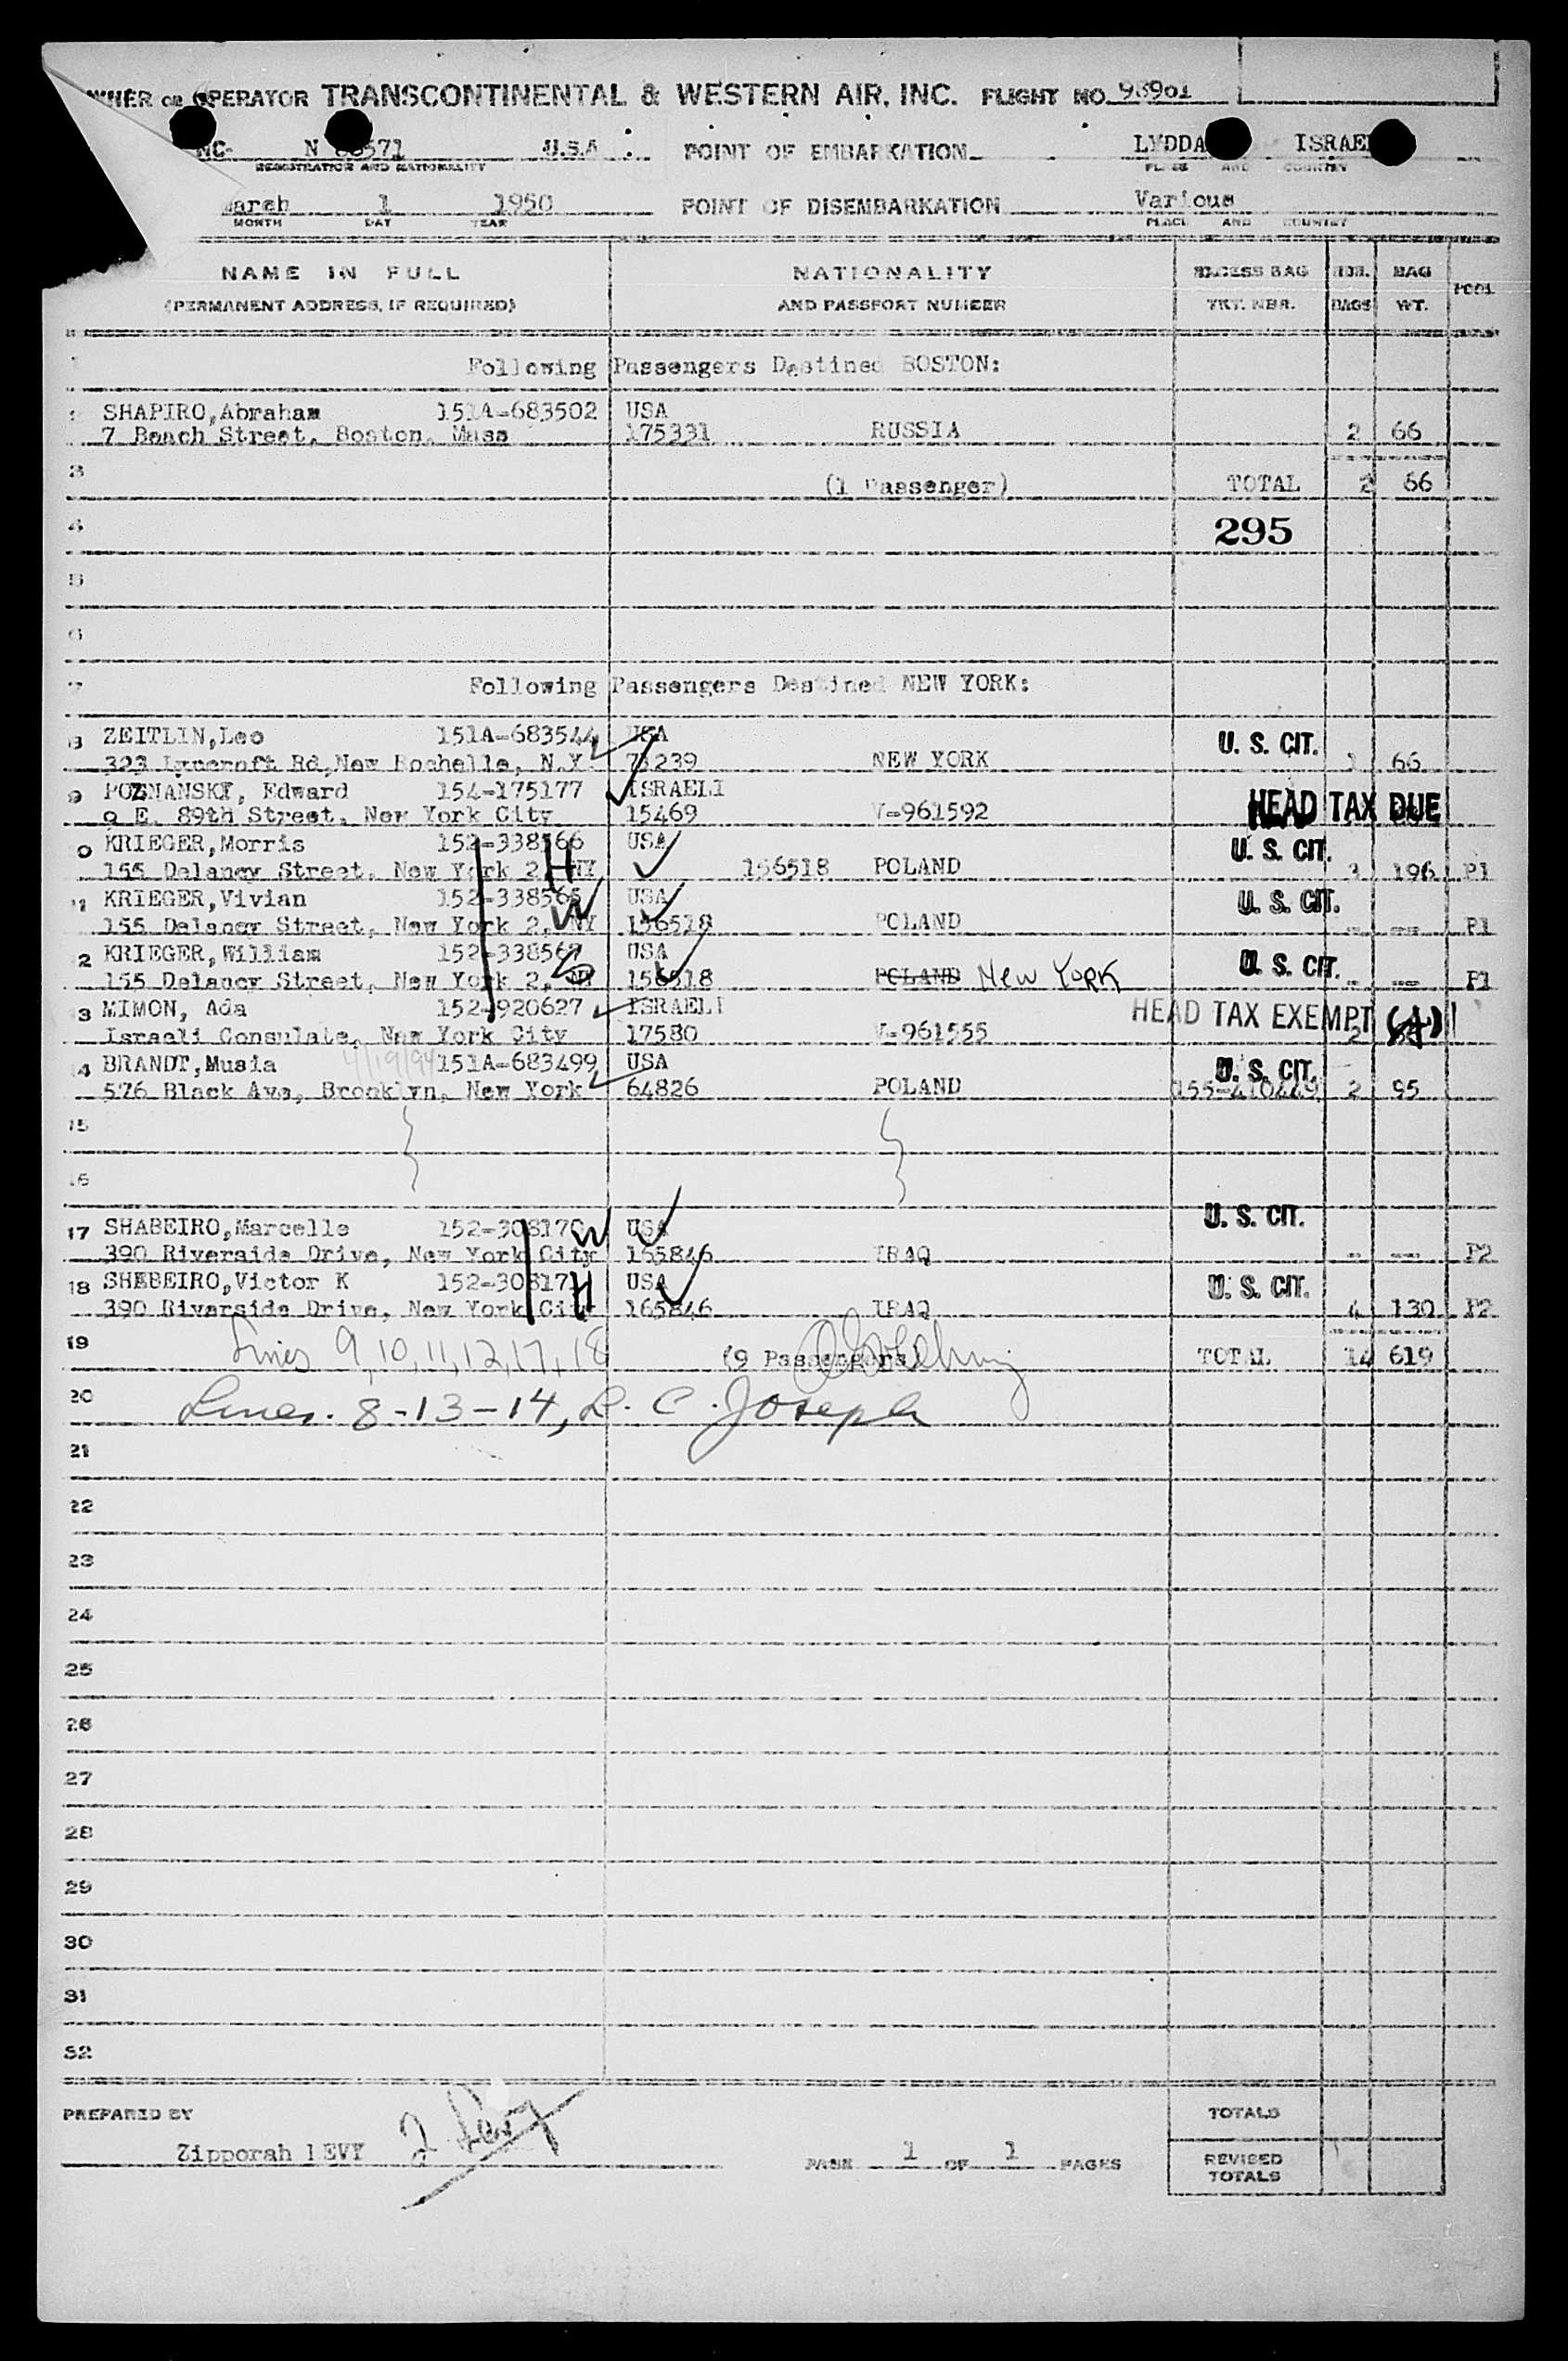 OPERATOR TRANSCONTINENTAL & WESTERN AIR, INC. FLIGHT NO.
NC- N U.S.A. POINT OF EMBARKATION LYDDA ISRAEL
REGISTRATION AND NATIONALITY PLACE AND COUNTRY
March 1 1950 POINT OF DISEMBARKATION Various
MONTH DAY YEAR PLACE AND COUNTRY
NAME IN FULL NATIONALITY EXCESS BAG NBR. BAG
(PERMANENT ADDRESS, IF REQUIRED) AND PASSPORT NUMBER TKT. NBR. BAGS WT. POOL
Following Passengers Destined BOSTON:
SHAPIRO,Abraham 151A-683502 USA
7 Beach Street, Boston, Mass 175331 RUSSIA 2 66
3 (1 Passenger) TOTAL 2 66
4 295
5
6
7 Following Passengers Destined NEW YORK:
8 ZEITLIN,Leo 151A-683544 USA U. S. CIT.
323 Lyncroft Rd,New Rochelle, N.Y. 71239 NEW YORK 1 66
9 POZNANSKY, Edward 154-175177 ISRAELI
9 E. 89th Street, New York City 15469 V-961592 HEAD TAX DUE
0 KRIEGER,Morris 152-338566 USA U. S. CIT.
155 Delancy Street, New York 2, NY H 156518 POLAND 3 196 P1
11 KRIEGER,Vivian 152-338565 USA U. S. CIT.
155 Delancy Street, New York 2, NY W 156518 POLAND -- --- P1
2 KRIEGER,William 152-338567 USA U. S. CIT.
155 Delancy Street, New York 2, NY S 156518 POLAND New York -- --- P1
3 MIMON, Ada 152-920627 ISRAELI HEAD TAX EXEMPT (A)
Israeli Consulate, New York City 17580 V-961555 2
4 BRANDT,Musia 151A-683499 USA U. S. CIT.
576 Black Ave, Brooklyn, New York 64826 POLAND 155-410449 2 95
15
16
17 SHABEIRO,Marcelle 152-308170 W USA U. S. CIT.
390 Riverside Drive, New York City 165846 IRAQ -- --- P2
18 SHEBEIRO,Victor K 152-308171 H USA U. S. CIT.
390 Riverside Drive, New York City 165846 IRAQ 4 130 P2
19 Lines 9,10,11,12,17,18 (9 Passengers) TOTAL 14 619
20 Lines. 8-13-14, L. C. Joseph
21
22
23
24
25
26
27
28
29
30
31
32
PREPARED BY TOTALS
Zipporah LEVY Z Levy PAGE 1 OF 1 PAGES REVISED
TOTALS